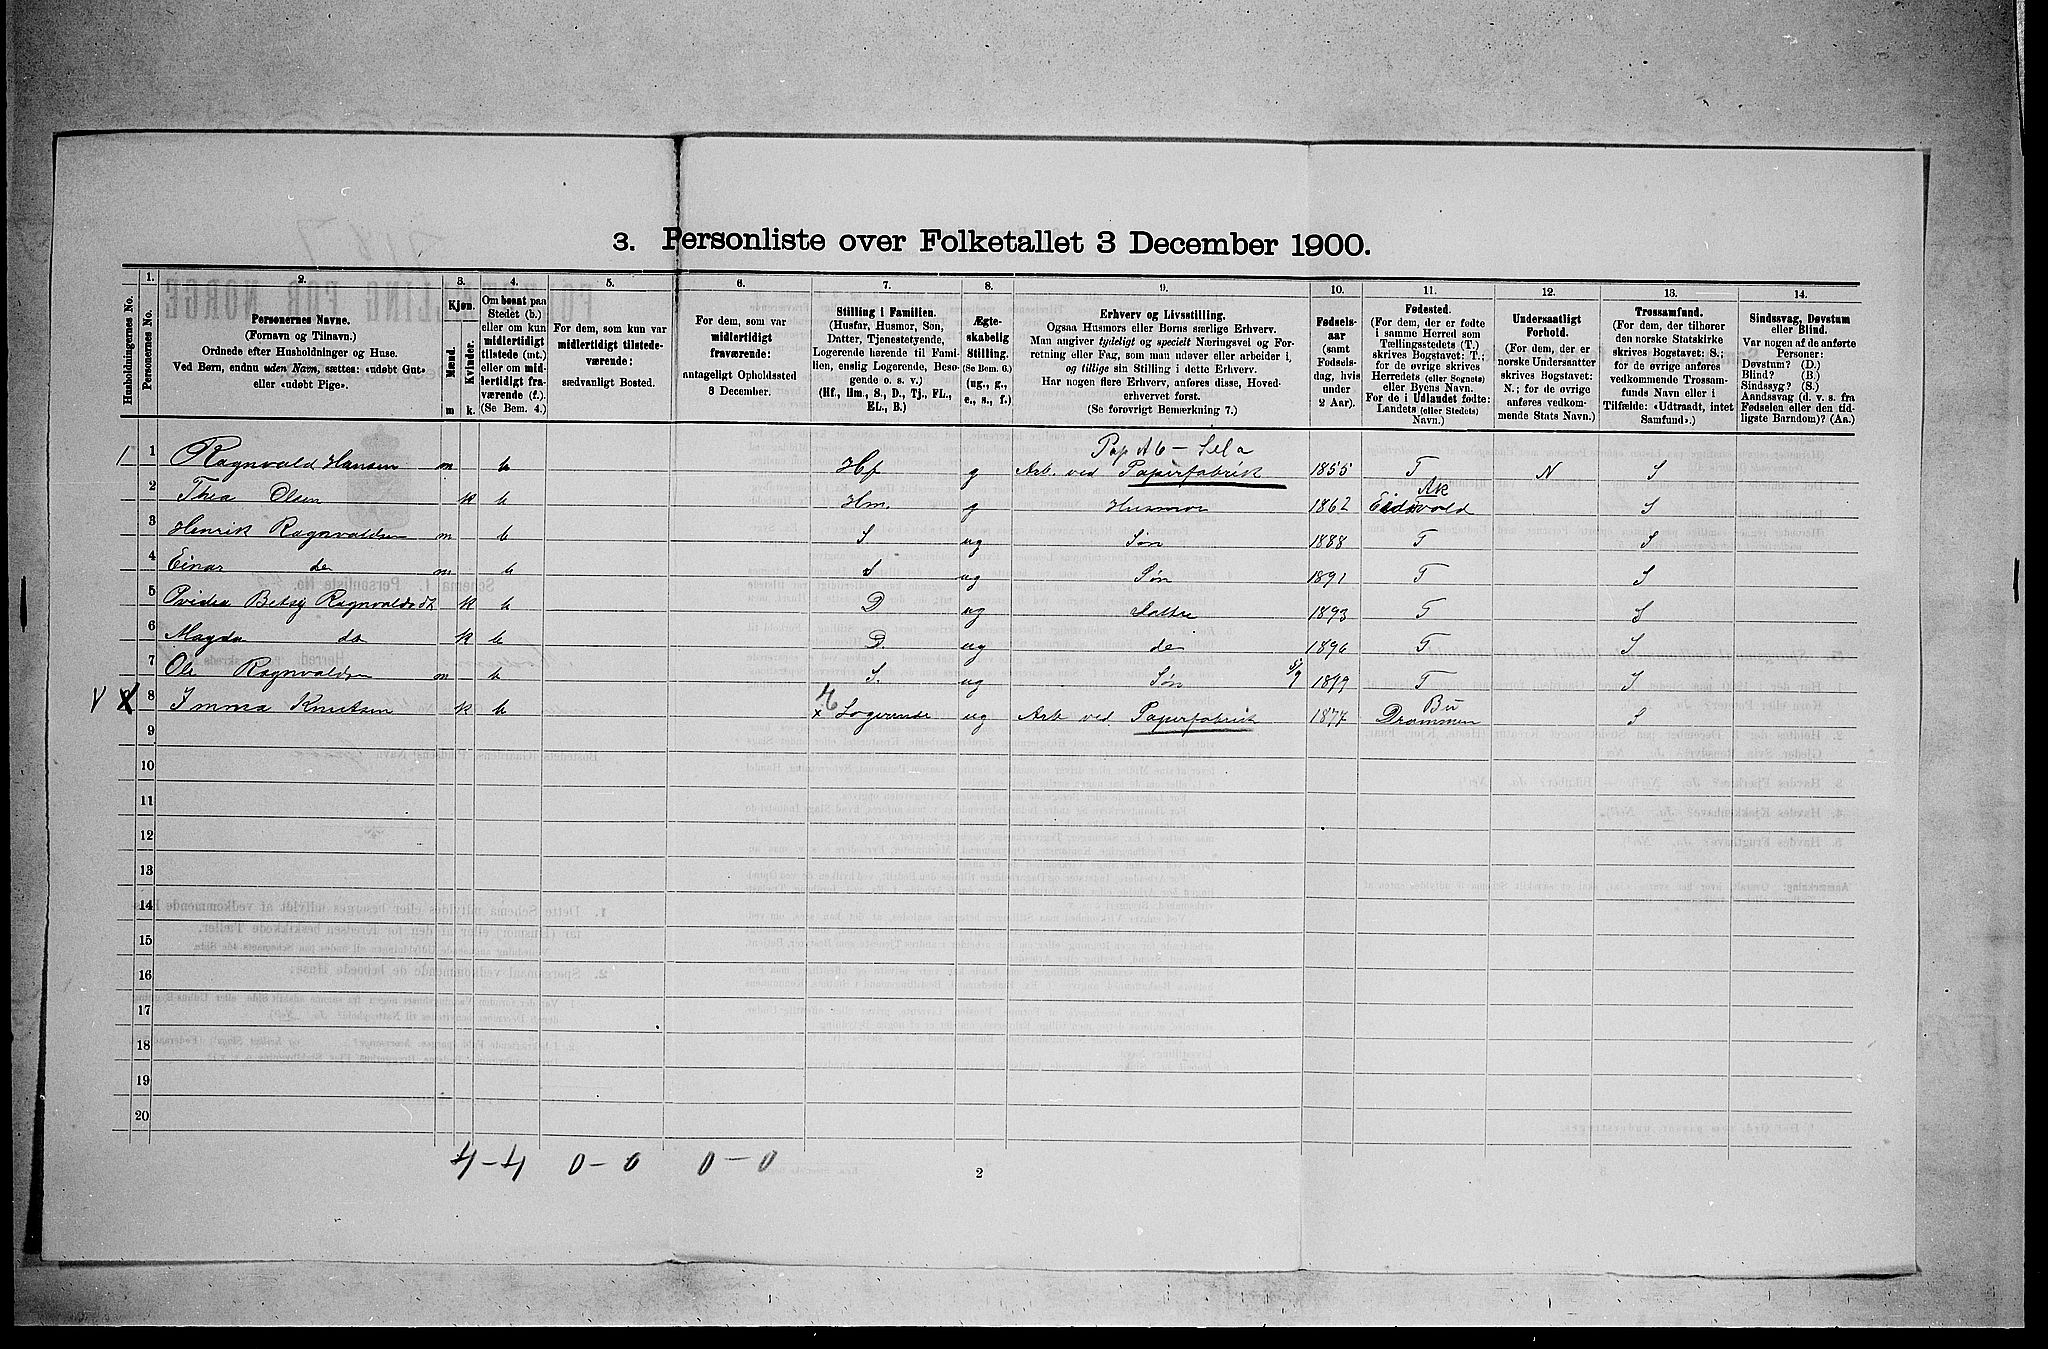 3. Personliste over Folketallet 3 December 1900.
Husholdningernes No.
1. Personernes No.
2. Personernes Navne.
(Fornavn og Tilnavn.)
Ordnede efter Husholdninger og Huse.
Ved Børn, endnu uden Navn, sættes: «udøbt Gut»
eller «udøbt Pige».
3. Kjøn.
Mænd. m
Kvinder. k.
4. Om bosat paa
Stedet (b.)
eller om kun
midlertidigt
tilstede (mt.)
eller om mid-
lertidigt fra-
værende (f.).
(Se Bem. 4.)
5. For dem, som kun var
midlertidigt tilstede-
værende:
sædvanligt Bosted.
6. For dem, som var
midlertidigt
fraværende:
antageligt Opholdssted
3 December.
7. Stilling i Familien.
(Husfar, Husmor, Søn,
Datter, Tjenestetyende,
Logerende hørende til Fami-
lien, enslig Logerende, Besø-
gende o. s. v.)
(Hf., Hm., S., D., Tj., FL.,
EL., B.)
8. Ægte-
skabelig
Stilling.
(Se Bem. 6.)
(ug., g.,
e., s., f.)
9. Erhverv og Livsstilling.
Ogsaa Husmors eller Børns særlige Erhverv.
Man angiver tydeligt og specielt Næringsvei og For-
retning eller Fag, som man udøver eller arbeider i,
og tillige sin Stilling i dette Erhverv.
Har nogen flere Erhverv, anføres disse, Hoved-
erhvervet først.
(Se forøvrigt Bemærkning 7.)
10. Fødsels-
aar
(samt
Fødsels-
dag, hvis
under
2 Aar).
11. Fødested.
(For dem, der er fødte
i samme Herred som
Tællingsstedets (T.)
skrives Bogstavet: T.;
for de øvrige skrives
Herredets (eller Sognets)
eller Byens Navn.
For de i Udlandet fødte:
Landets (eller Stedets)
Navn.)
12. Undersaatligt
Forhold.
(For dem, der er
norske Undersaatter
skrives Bogstavet:
N.; for de øvrige
anføres vedkom-
mende Stats Navn.)
13. Trossamfund.
(For dem, der tilhører
den norske Statskirke
skrives Bogstavet: S.;
for de øvrige anføres
vedkommende Trossam-
funds Navn eller i
Tilfælde: «Udtraadt, intet
Samfund».)
14. Sindssvag, Døvstum
eller Blind.
Var nogen af de anførte
Personer:
Døvstum? (D.)
Blind? (B.)
Sindssyg? (S.)
Aandssvag (d. v. s. fra
Fødselen eller den tid-
ligste Barndom)? (Aa.)
Pap Ab - Sel a
1 1 Ragnvald Hansen m b Hf g Arb. ved Papirfabrik 1855 T N S
Ak
2 Thea Olsen k b Hm. g Husmor 1862 Eidsvold S
3 Henrik Ragnvaldsen m b S ug Søn 1888 T S
4 Einar do m b S ug Søn 1891 T S
5 Betsy Ragnvaldsdt k b D ug Datter 1893 T S
6 Magda do k b D. ug do 1896 T S
7 Ole Ragnvaldsen m b S. ug Søn 1899 T S
Bu
V X 8 Imma Knutsen k b x Logerende ug Arb ved Papirfabrik 1877 Drammen S
9
10
11
12
13
14
15
16
17
18
19
20
4-4 0-0 0-0
2